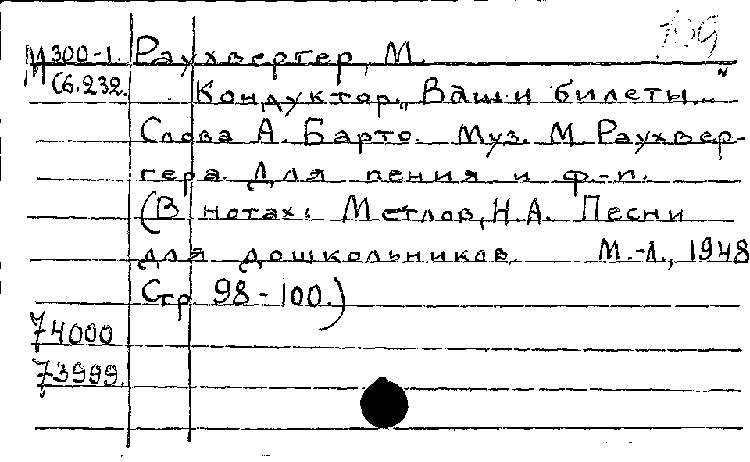 М300-1. Раухвергер, М.
С6.232. Кондуктор. „Ваши билеты..."
Слова А. Барто. Муз. М. Раухвер-
гера. Для пения и ф.-п.
(В нотах: Метлов, Н.А. Песни
для дошкольников. М.-Л., 1948
Стр. 98-100.)
74000
73999.